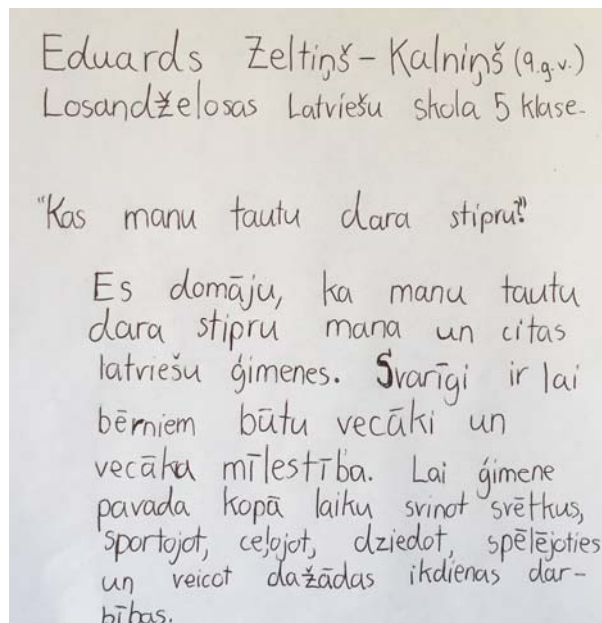 Eduards Zeltiņš - Kalniņš (9.g.v.)
Losandželosas Latviešu skola 5 klase.
"Kas manu tautu dara stipru?"
Es domāju, ka manu tautu
dara stipru mana un citas
latviešu ģimenes. Svarīgi ir lai
bērniem būtu vecāki un
vecāka mīlestība. Lai ģimene
pavada kopā laiku svinot svētkus,
sportojot, ceļojot, dziedot, spēlējoties
un veicot dažādas ikdienas dar-
bības.